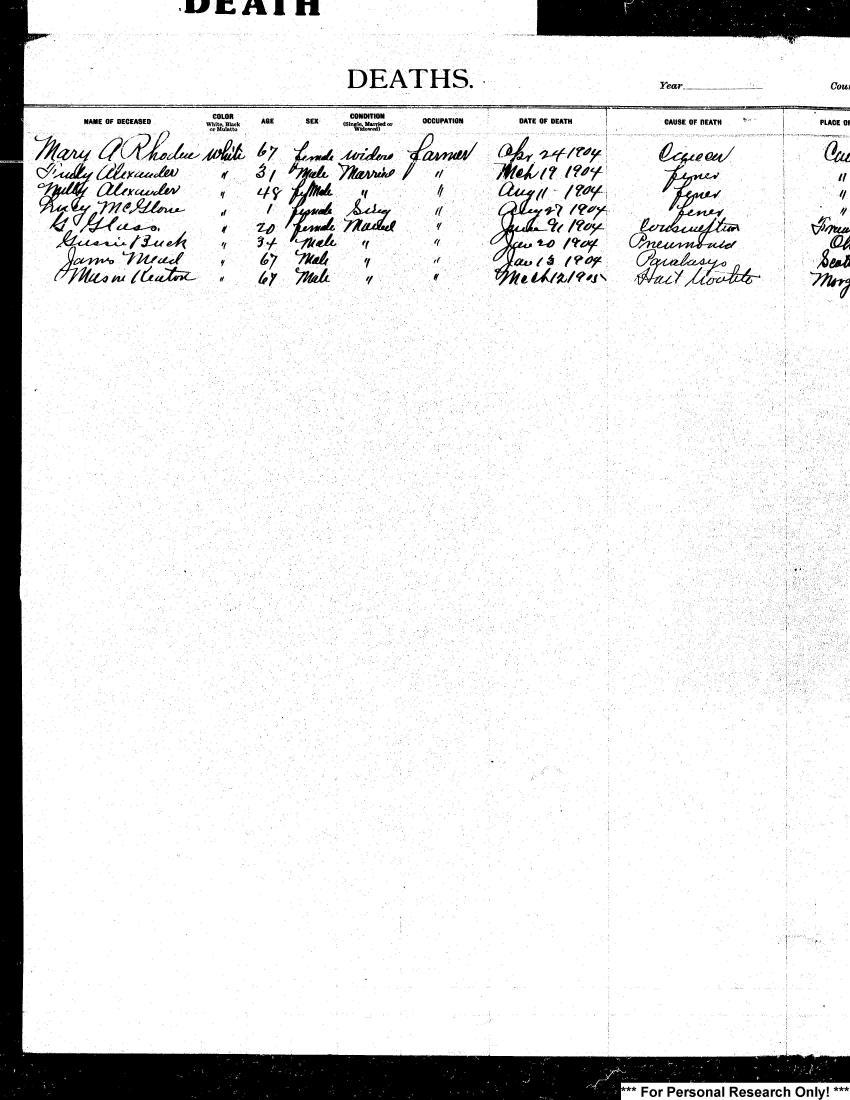 DEATH
DEATHS.
Year
NAME OF DECEASED COLOR White, Black or Mulatto AGE SEX CONDITION (Single, Married or Widowed) OCCUPATION DATE OF DEATH CAUSE OF DEATH PLACE O
Mary A Rhoden white 67 female widow farmer Apr 24 1904 Cancer
Alexander " 31 Male Married " Mch 19 1904 fever "
Milly Alexander " 48 feMale " " Aug 11 1904 fever "
McGlone " 1 female " Aug 27 1904 fever "
G Glass " 20 female " 1904
Gussie Buck " 34 Male " " Jan 20 1904
James Mead " 67 Male " " Jan 13 1904 Paralasys
Keaton " 67 Male " " Mech 12 1905 Morg
*** For Personal Research Only! ***